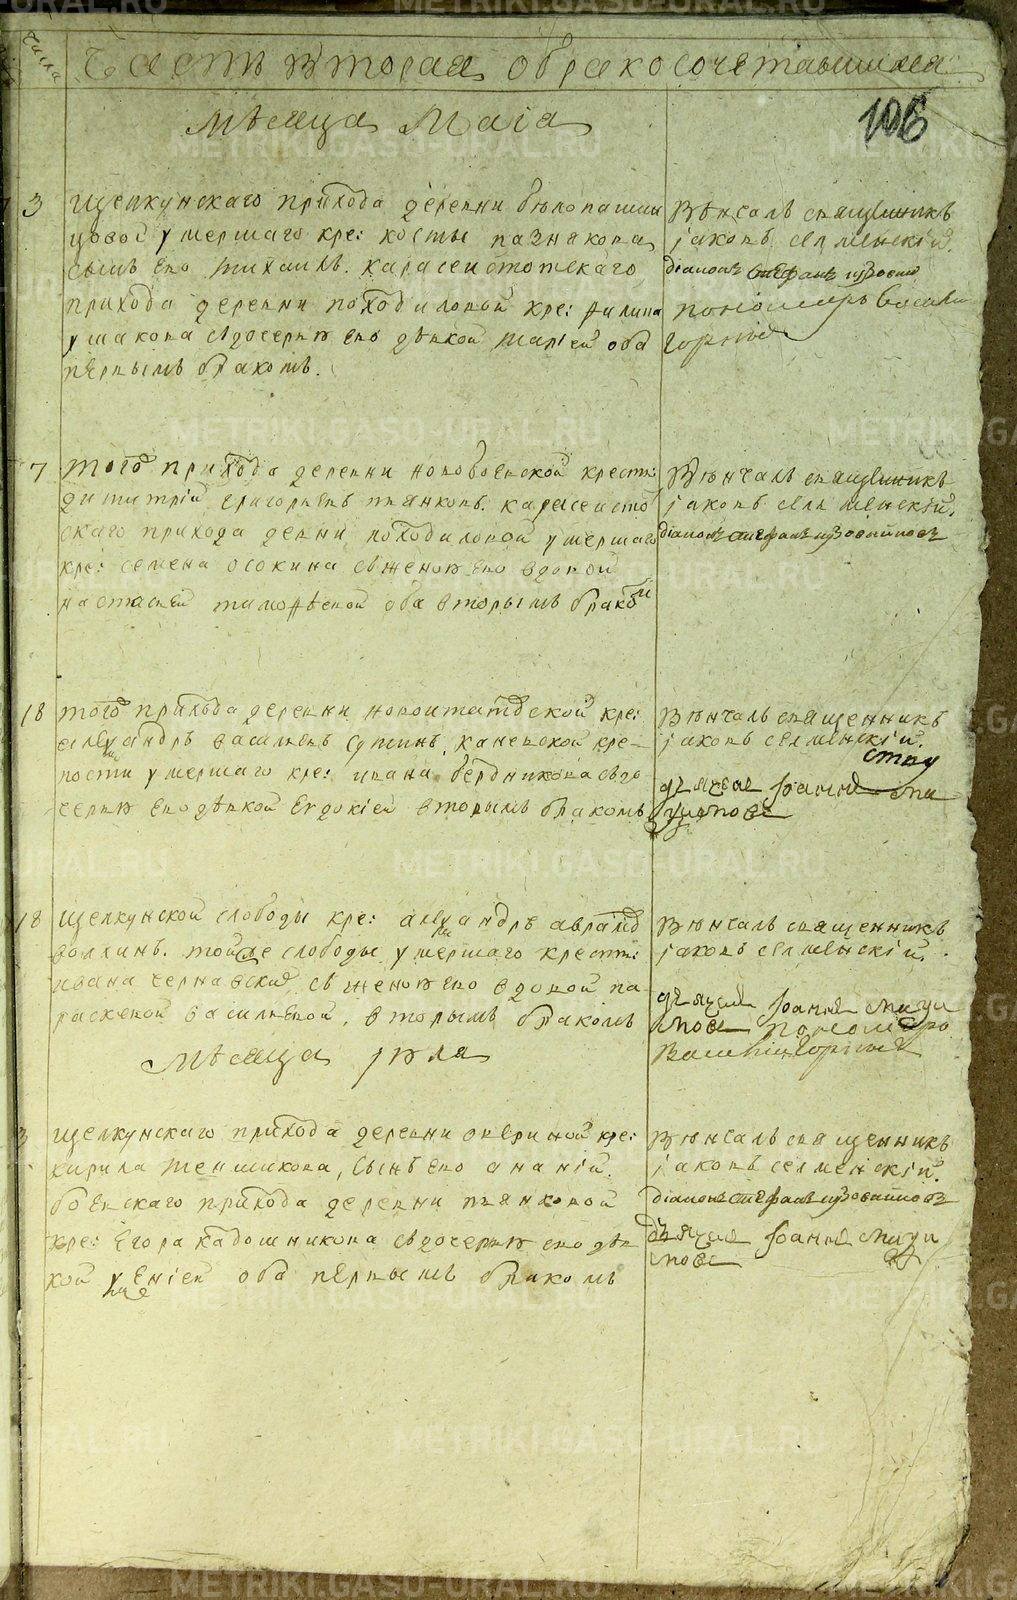 числа
Часть вторая о бракосочетавшихся
106
мѣсяца Маiа
3 Щелкунскаго прихода деревни бѣлопашин
цовой умершаго кре: косты пазнякова
сынъ ево михаилъ. карасеистотскаго
прихода деревни походиловой кре: филипа
ушакова сдочерью ево дѣвкой марiей оба
первымъ бракомъ.
Вѣнчалъ священникъ
iаковъ селменскiй.
дiаконъ стефанъ
пономарь Василей
горныхъ
7 того прихода деревни новобоевской крестъ:
димитрiй григорьевъ пьянковъ. карасеисто
скаго прихода девни походиловой умершаго
кре: семена осокина сженою ево вдовой
настасьей тимофѣевой оба вторымъ бракомъ
Вѣнчалъ священникъ
iаковъ селменскiй.
дiаконъ стефанъ
18 того прихода деревни новоипатовской кре:
алеѯандръ васильевъ сутинъ, каневской кре-
пости умершаго кре: ивана бердникова сдо
черью ево дѣвкой Евдокiей вторымъ бракомъ
Вѣнчалъ священникъ
iаковъ селменскiй.
дьячекъ Iоаннъ
18 Щелкунской слободы кре: алеѯандръ аврамо
волкинъ. тойже слободы умершаго крестъ:
ивана чернавских съ женою ево вдовой па
раскевой васильевой, вторымъ бракомъ
Вѣнчалъ священникъ
iаковъ селменскiй.
дьячекъ Iоаннъ
пономарь
Василiй горныхъ
Мѣсяца июля
3 Щелкунскаго прихода деревни аверинской кре:
кирила меншикова, сынъ ево ананiй.
боевскаго прихода деревни пьянковой
кре: Егора кадошникова сдочерью ево дѣв
кой оба первымъ бракомъ
Вѣнчалъ священникъ
iаковъ селменскiй.
дiаконъ стефанъ
дьячекъ Iоаннъ